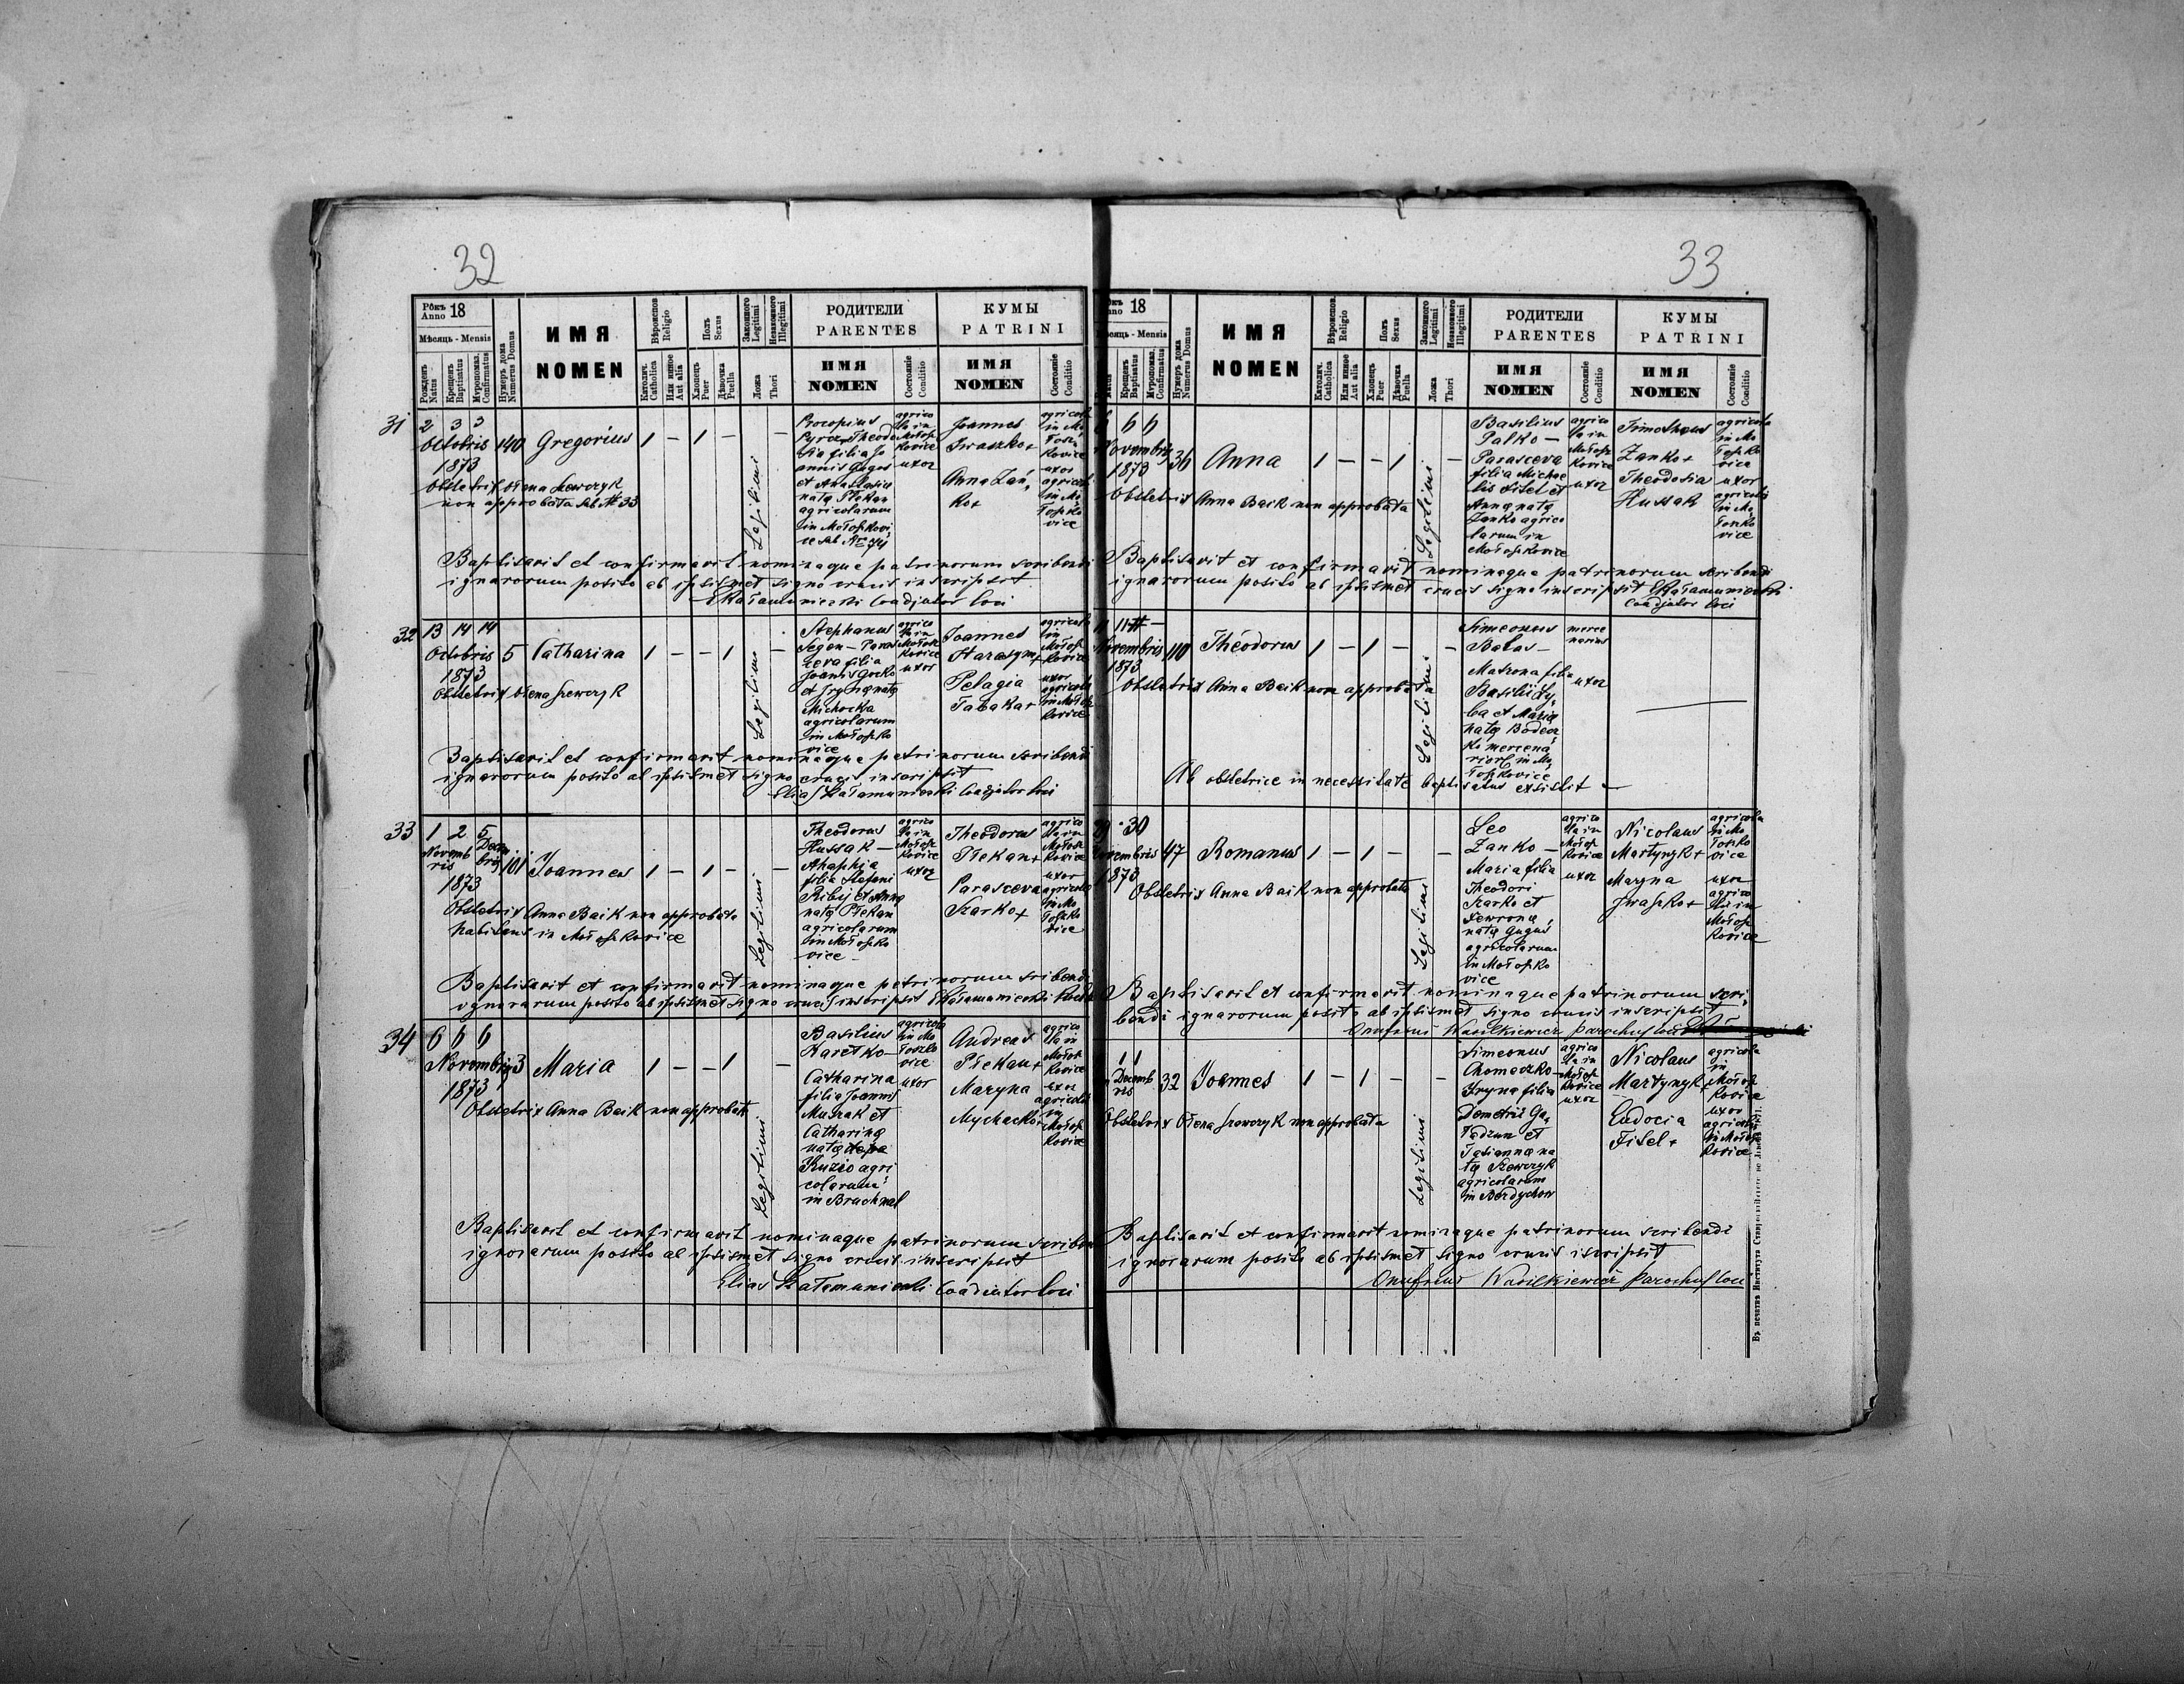 32
Рôкъ 18
Anno
Мѣсяць - Mensis
Рожденъ Natus
Крещенъ Baptisatus
Мѵропомаз. Confirmatus
Нумеръ дома Numerus Domus
ИМЯ
NOMEN
Вѣроиспов. Religio
Католич. Catholica
Или иное Aut alia
Полъ Sexus
Хлопець Puer
Дѣвочка Puella
Законного Legitimi
Незаконного Illegitimi
Ложа Thori
РОДИТЕЛИ
PARENTES
ИМЯ
NOMEN
Состояніе Conditio
КУМЫ
PATRINI
ИМЯ
NOMEN
Состояніе Conditio
31
2 3 3
Octobris
1873
140
Gregorius
1 – 1 –
Legitimi
–
Procopius
Pyra, Theodo
sia filia Jo
annis Gugus
et Anastasia
nata Plekan
agricolarum
in Mołoszkovi
ce
agrico
la in
Mołosz
Kovice
uxor
Joannes
Iwaszko +
Anna Zań
Ko +
agricola
in Mo
łosz
Kovice
uxor
agricola
in Mo
łoszko
vice
Obstetrix Ołena Szewczyk
non approbata sub N 33
Baptisavit et confirmavit nominaque patrinorum scribendi
ignarorum posito ab ipsismet signo crucis inscripsit
Coadjutor loci
32
13 14 14
Octobris
1873
5
Catharina
1 – – 1
Legitimi
–
Stephanus
Segen – Paras
ceva filia
Joannis Gocko
et Iryna nata
Michocka
agricolarum
in Mołoszko
vice
agrico
la in
Mołosz
Kovice
uxor
Joannes
Harasym +
Pelagia
Tabaka +
agricola
in
Mołosz
Kovice
uxor
agricola
in Mołosz
Kovice
Obstetrix Ołena Szewczyk
Baptisavit et confirmavit nominaque patrinorum scribendi
ignarorum posito ab ipsismet signo crucis inscripsit
Elias Coadjutor loci
33
1 2 5
Novemb
ris
Decem
bris
1873
101
Joannes
1 – 1 –
Legitimi
–
Theodorus
Hussak –
Ahaphia
filia Stefani
Ribij et Anna
nata Plekan
agricolarum
in Mołoszko
vice –
agrico
la in
Mołosz
Kovice
uxor
Theodorus
Plekan +
Parasceva
Szarko +
agrico
la in
Mołosz
Kovice
uxor
agricola
in Mo
łoszko
vice
Obstetrix Anna Baik non approbata
habitans in Mołoszkovice
Baptisavit et confirmavit nominaque patrinorum scribendi
ignararum posito ab ipsismet signo crucis inscripsit
34
6 6 6
Novembris
1873
3
Maria
1 – – 1
Legitimi
–
Basilius
Karetko –
Catharina
filia Joannis
Muzak et
Catharina
nata
Kuzio agri
colarum
in Bruchnal
agricola
in Mo
łoszko
vice
uxor
Andreas
Plekan +
Maryna
Mychacko +
agrico
la in
Mołosz
Kovice
uxor
agricola
in
Mołosz
Kovice
Obstetrix Anna Baik non approbata
Baptisavit et confirmavit nominaque patrinorum scriben
ignorarum posito ab ipsismet signo crucis inscripsit
Elias Coadiutor loci
33
18
Mensis
Крещенъ Baptisatus
Мѵропомаз. Confirmatus
Нумеръ дома Numerus Domus
ИМЯ
NOMEN
Вѣроиспов. Religio
Католич. Catholica
Или иное Aut alia
Полъ Sexus
Хлопець Puer
Дѣвочка Puella
Законного Legitimi
Незаконного Illegitimi
Ложа Thori
РОДИТЕЛИ
PARENTES
ИМЯ
NOMEN
Состояніе Conditio
КУМЫ
PATRINI
ИМЯ
NOMEN
Состояніе Conditio
6 6
Novembris
1873
36
Anna
1 – – 1
Legitimi
–
Basilius
Palko –
Parasceva
filia Michae
lis Fitel et
Anna nata
Zanko agrico
larum in
Mołoszkovice
agrico
la in
Mołosz
Kovice
uxor
Timotheus
Zanko +
Theodosia
Hussak
agricola
in Mo
łoszko
vice
uxor
agricola
in Mo
łoszko
vice
Obstetrix Anna Baik non approbata
Baptisavit et confirmavit nominaque patrinorum scribendi
ignarorum posito ab ipsismet crucis signo inscripsit
Coadjutor loci
11 11 –
Novembris
1873
110
Theodorus
1 – 1 –
Legitimi
–
Simeonus
Bałas –
Matrona filia
Basilii Ły
ba et Maria
nata Bodnar
mercena
riorum in Mo
łoszkovice
merce
narius
uxor
Obstetrix Anna Baik non approbata
Ab obstetrice in necessitate baptisatus exsistit –
30
Novembris
1873
47
Romanus
1 – 1 –
Legitimi
–
Leo
Zanko –
Maria filia
Theodori
Szarko et
Fewrona
nata Gugus
agricolarum
in Mołoszko
vice
agrico
la in
Mołosz
Kovice
uxor
Nicolaus
Martynyk +
Maryna
Iwaszko +
agricola
in Mo
łoszko
vice
uxor
agrico
la in
Mołosz
Kovice
Obstetrix Anna Baik non approbata
Baptisavit et confirmavit nominaque patrinorum scri
bendi ignarorum posito ab ipsismet signo crucis inscripsit
Onufrius Wasilkiewicz parochus loci
1 1
Decemb
ris
32
Joannes
1 – 1 –
Legitimi
–
Simeonus
Chomeczko –
Iryna filia
Demetrii Ga
ładzun et
Tatianna na
ta Szewczyk
agricolarum
in Berdychow
agrico
la in
Mołosz
Kovice
uxor
Nicolaus
Martynyk +
Eudocia
Fitel +
agricola
in
Mołosz
Kovice
uxor
agricola
in Mołosz
Kovice
Obstetrix Ołena Szewczyk non approbata
Baptisavit et confirmavit nominaque patrinorum scribendi
ignorarum posito ab ipsismet signo crucis iscripsit
Onufrius Wasilkiewicz parochus loci
Въ печатнѣ Института Ставропигійского